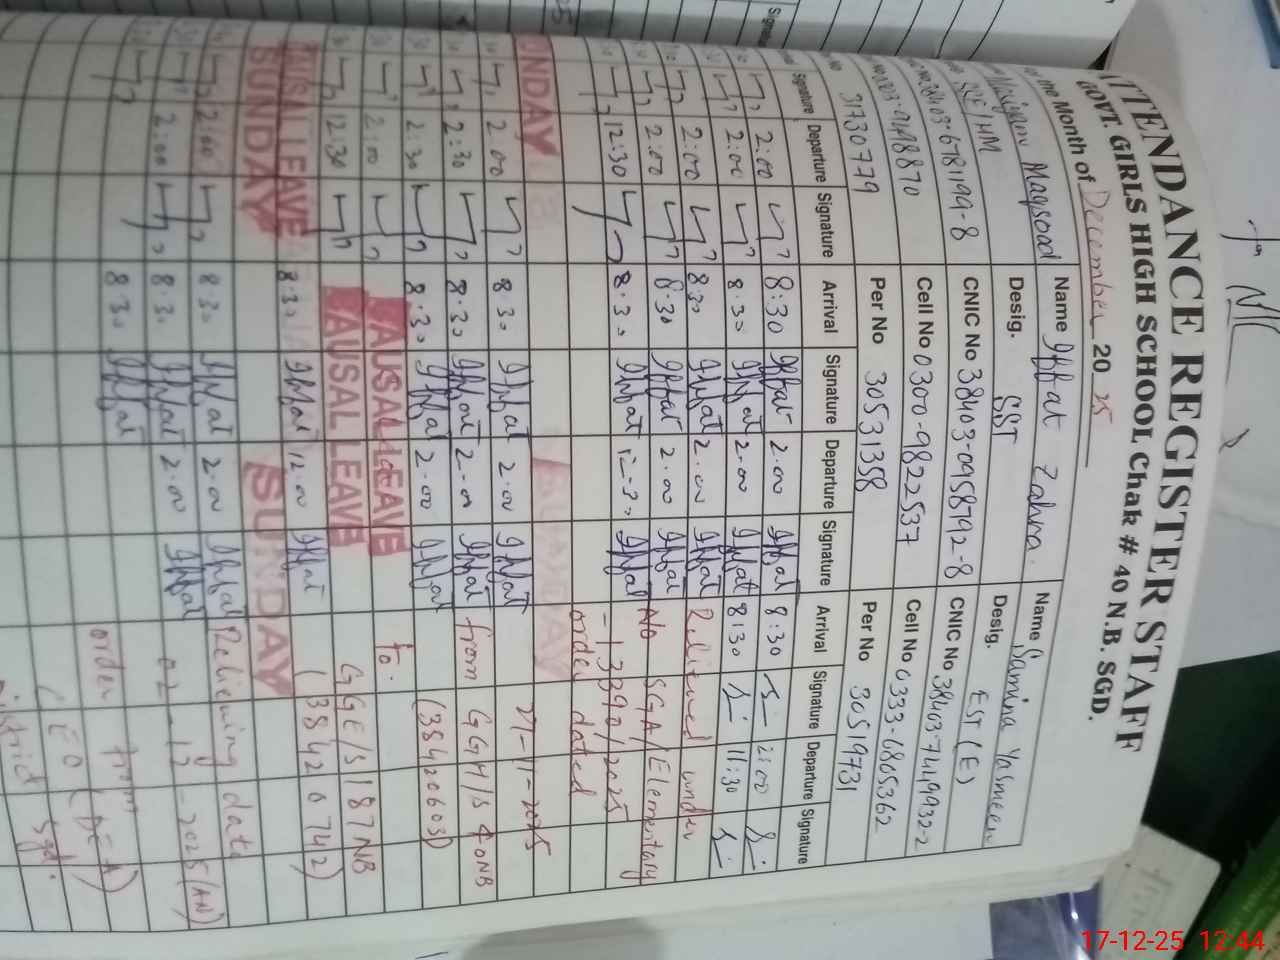 ATTENDANCE REGISTER STAFF
GOVT. GIRLS HIGH SCHOOL Chak # 40 N.B. SGD.
the Month of December 2025
Maqsood
Name Iffat Zahra.
Name Samina Yasmeen
SSE/HM
Desig. SST
Desig. EST (E)
38403-6781199-8
CNIC No 38403-0958792-8
CNIC No 38403-7449932-2
Cell No 0300-9822537
Cell No 0333-6805362
31730779
Per No 30531358
Per No 30519731
Signature Departure Signature Arrival Signature Departure Signature Arrival Signature Departure Signature
2:00 8:30 Iffat 2.00 Iffat 8:30 2:00
2:00 8.30 Iffat 2.00 Iffat 8:30 11:30
2:00 8.30 Iffat 2.00 Iffat Relieved under
2:00 8.30 Iffat 2.00 Iffat No SGA/Elementary
12:30 8.30 Iffat Iffat -13390/2025
order dated
SUNDAY
2:00 8.30 Iffat 2.00 Iffat 27-11-2025
2:30 8.30 Iffat 2.00 Iffat from GGH/S 40NB
2:30 8.30 Iffat 2.00 Iffat (38420603)
2:00 CAUSAL LEAVE to.
12:30 CAUSAL LEAVE GGE/S 187NB
CAUSAL LEAVE 8.30 Iffat 12.00 Iffat (38420742)
SUNDAY SUNDAY
2:00 8.30 Iffat 2.00 Iffat Relieving date
2:00 8.30 Iffat 2.00 Iffat 02-12-2025 (AN)
8.30 Iffat order from
CEO (DEA)
District Sgd.
17-12-25 12:44